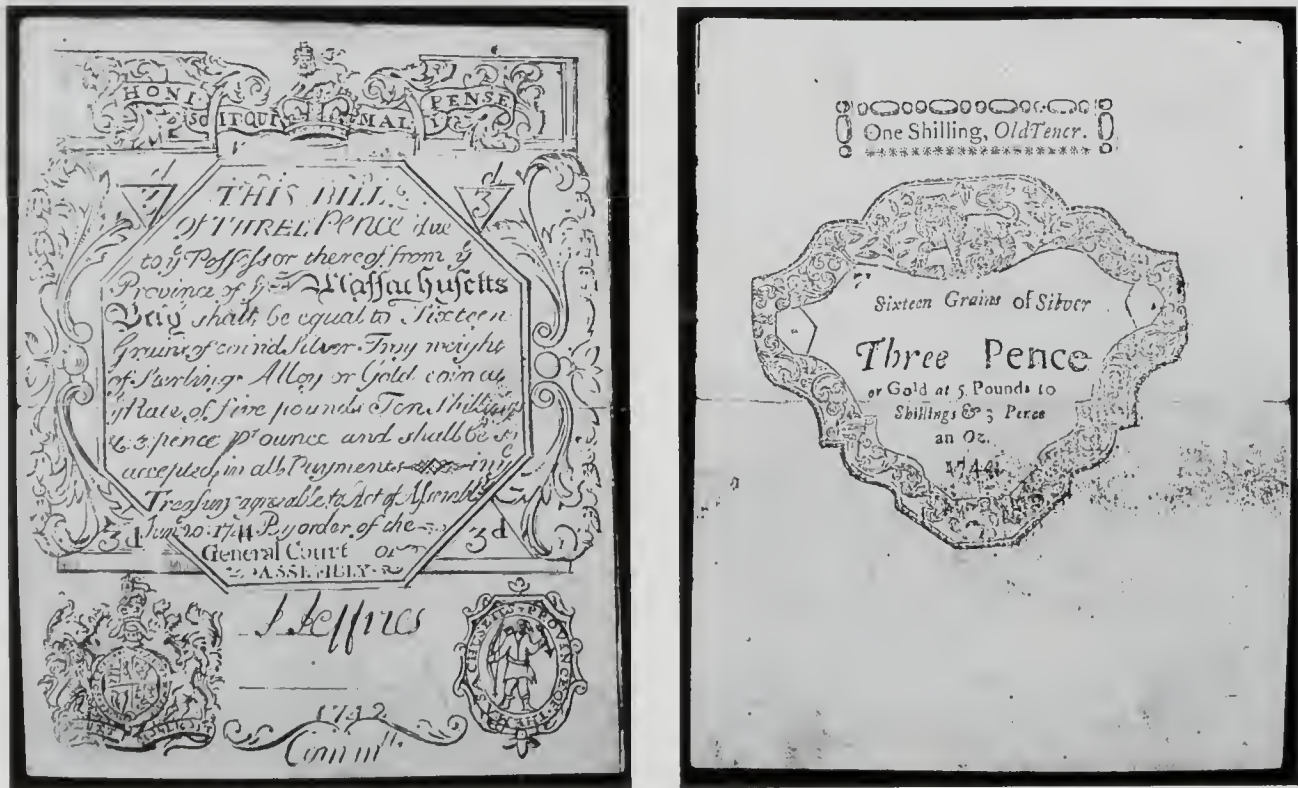 HONI SOIT QUI MAL PENSE
THIS BILL
of THREE Pence due
to yͤ Possessor thereof from yͤ
Province of yͤ Massachusetts
Bay shall be equal to Sixteen
Grains of coind Silver Troy weight
of Sterling Alloy or Gold coin at
yͤ Rate of five pounds Ten Shillings
& 3 pence pʳ ounce and shall be so
accepted in all Payments in yͤ
Treasury agreeable to Act of Assembly
3d Junͤ 20. 1744 By order of the 3d
General Court or
ASSEMBLY
J Jeffries
PROVINCE OF THE MASACHUSETTS
1742
Commᵗᵗͤ
One Shilling, Old Tenor.
Sixteen Grains of Silver
Three Pence
or Gold at 5 Pounds 10
Shillings & 3 Pence
an Oz.
1744